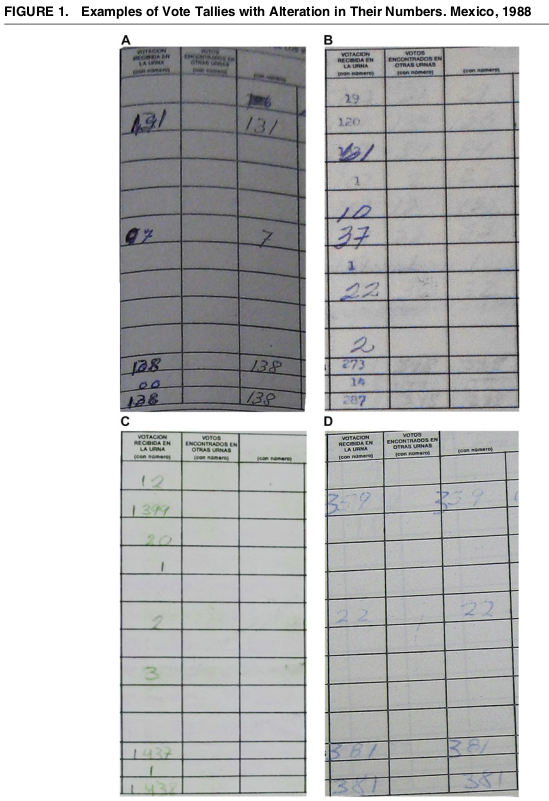 FIGURE 1. Examples of Vote Tallies with Alteration in Their Numbers. Mexico, 1988
A
VOTACION RECIBIDA EN LA URNA (con número)
VOTOS ENCONTRADOS EN OTRAS URNAS (con número)
(con número)
131
7
138 138
00
138 138
B
VOTACION RECIBIDA EN LA URNA (con número)
VOTOS ENCONTRADOS EN OTRAS URNAS (con número)
(con número)
19
120
61
1
10
37
1
22
2
273
14
287
C
VOTACION RECIBIDA EN LA URNA (con número)
VOTOS ENCONTRADOS EN OTRAS URNAS (con número)
(con número)
12
1399
20
1
2
3
1437
1
1438
D
VOTACION RECIBIDA EN LA URNA (con número)
VOTOS ENCONTRADOS EN OTRAS URNAS (con número)
(con número)
359 359
22 22
381 381
381 381